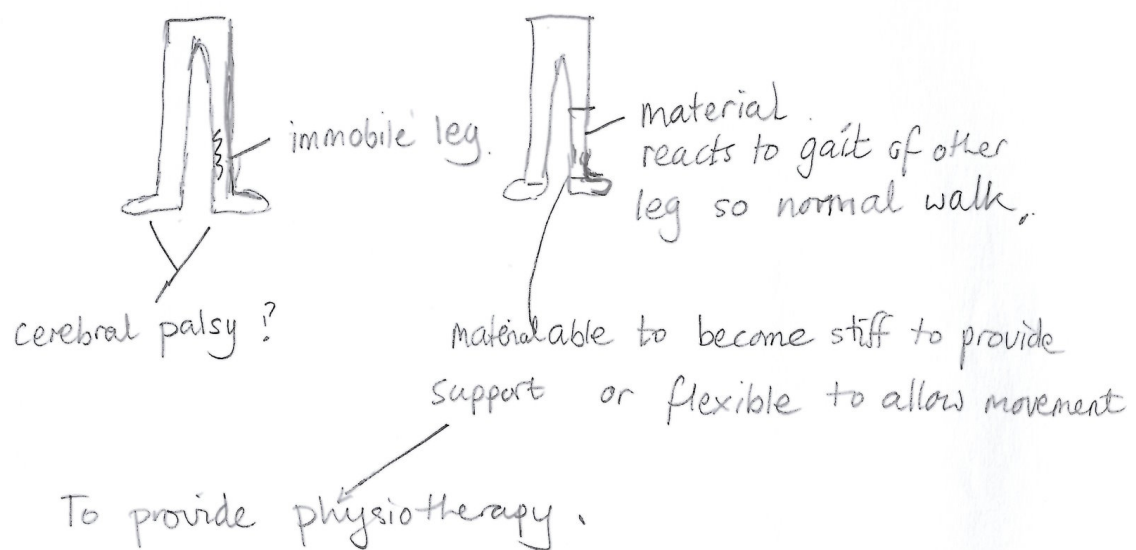 immobile leg.
material
reacts to gait of other
leg so normal walk.
cerebral palsy?
material able to become stiff to provide
support or flexible to allow movement
To provide physiotherapy.